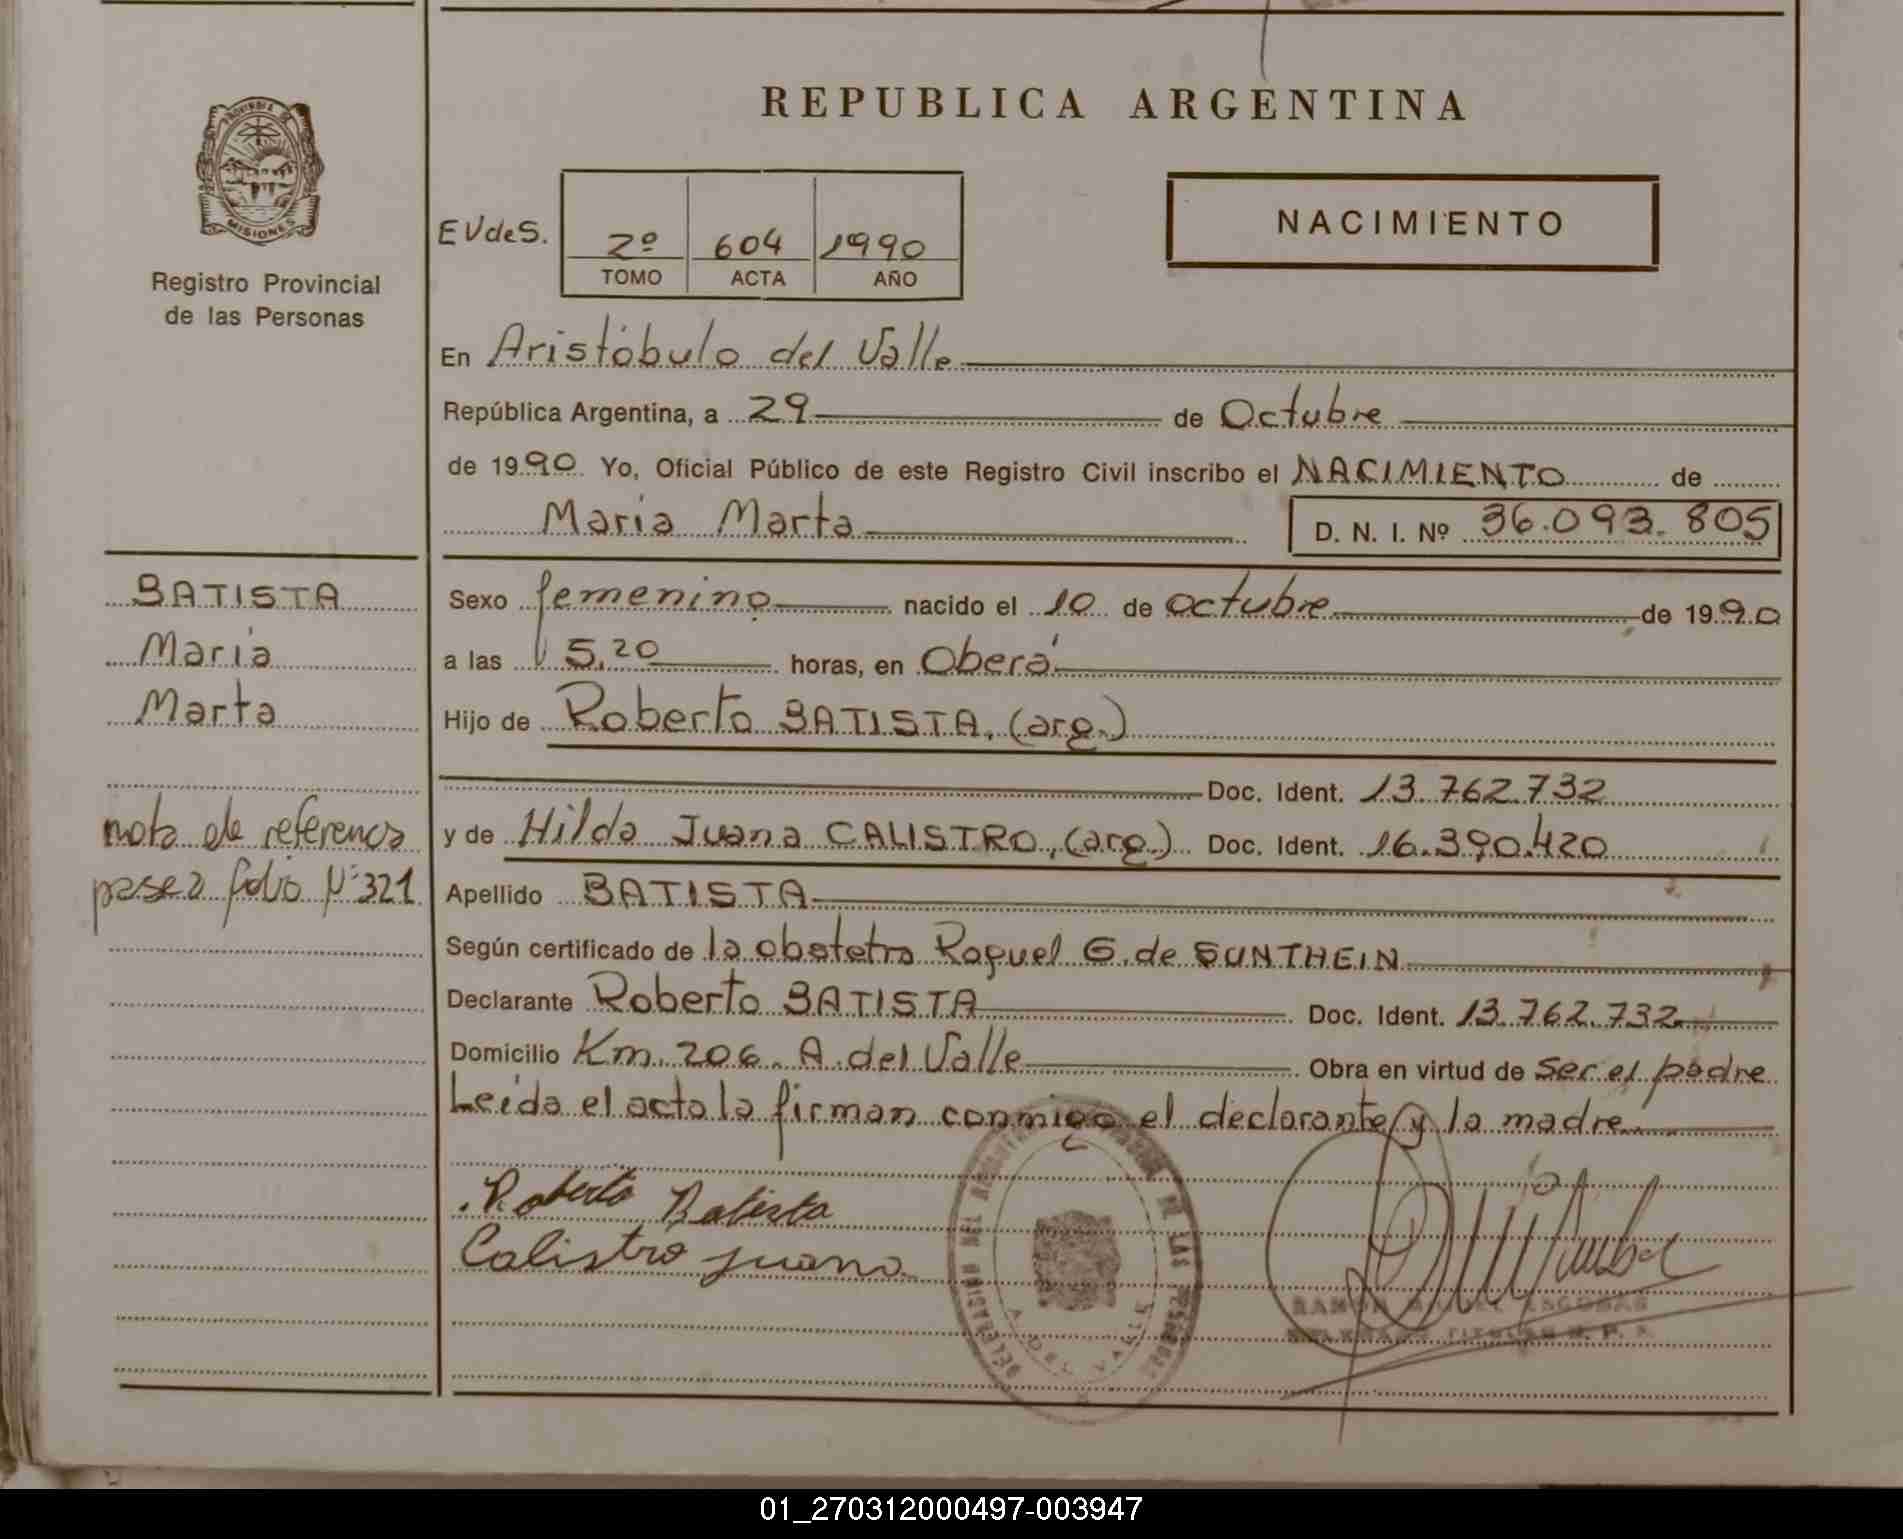 REPUBLICA ARGENTINA
PROVINCIA DE
MISIONES
Registro Provincial
de las Personas
EVdeS.
2º 604 1990
TOMO ACTA AÑO
NACIMIENTO
En Aristóbulo del Valle
República Argentina, a 29 de Octubre
de 1990 Yo, Oficial Público de este Registro Civil inscribo el NACIMIENTO de
Maria Marta D. N. I. Nº 36.093.805
BATISTA
Maria
Marta
nota de referencia
pase a folio Nº 321
Sexo femenino nacido el 10 de octubre de 1990
a las 5,20 horas, en Oberá
Hijo de Roberto BATISTA, (arg.)
Doc. Ident. 13.762.732
y de Hilda Juana CALISTRO, (arg.) Doc. Ident. 16.390.420
Apellido BATISTA
Según certificado de la obstetra Raquel G. de SUNTHEIN
Declarante Roberto BATISTA Doc. Ident. 13.762.732
Domicilio Km. 206. A. del Valle Obra en virtud de ser el padre
Leida el acta la firman conmigo el declarante y la madre
Roberto Batista
Calistro juana
DELEGACION DEL REGISTRO DE LAS PERSONAS
A. DEL VALLE
RAMON ESCOBAR
TITULAR R. P. P.
01_270312000497-003947